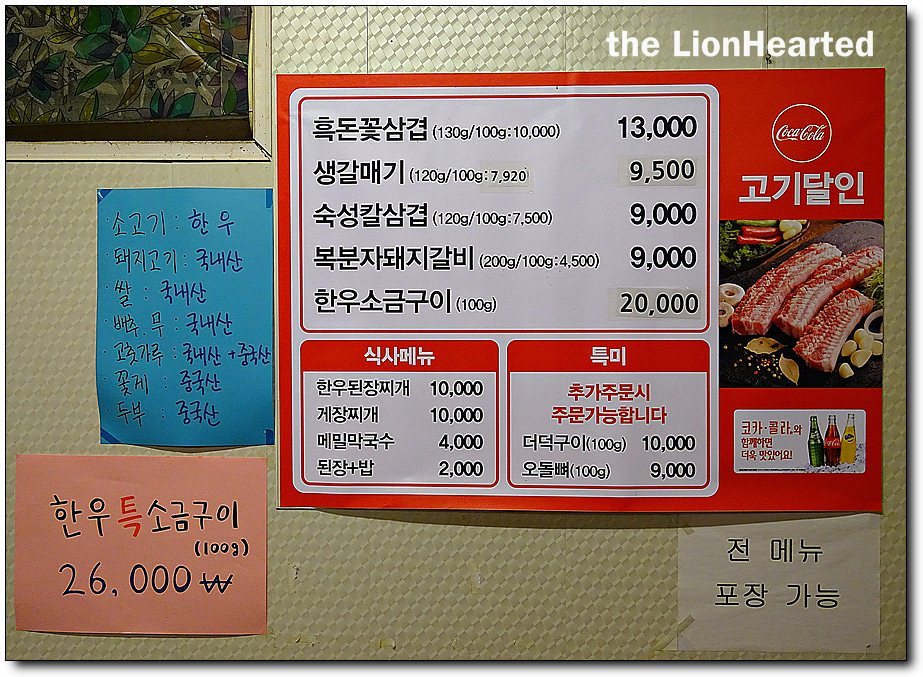 the LionHearted
흑돈꽃삼겹 (130g/100g:10,000) 13,000
생갈매기 (120g/100g:7,920) 9,500
숙성칼삼겹 (120g/100g:7,500) 9,000
복분자돼지갈비 (200g/100g:4,500) 9,000
한우소금구이 (100g) 20,000
Coca-Cola
고기달인
식사메뉴
한우된장찌개 10,000
게장찌개 10,000
메밀막국수 4,000
된장+밥 2,000
특미
추가주문시
주문가능합니다
더덕구이(100g) 10,000
오돌뼈(100g) 9,000
코카·콜라와
함께하면
더욱 맛있어요!
소고기 : 한우
돼지고기 : 국내산
쌀 : 국내산
배추, 무 : 국내산
고춧가루 : 국내산 + 중국산
꽃게 : 중국산
두부 : 중국산
한우특소금구이
(100g)
26,000 ₩
전 메뉴
포장 가능